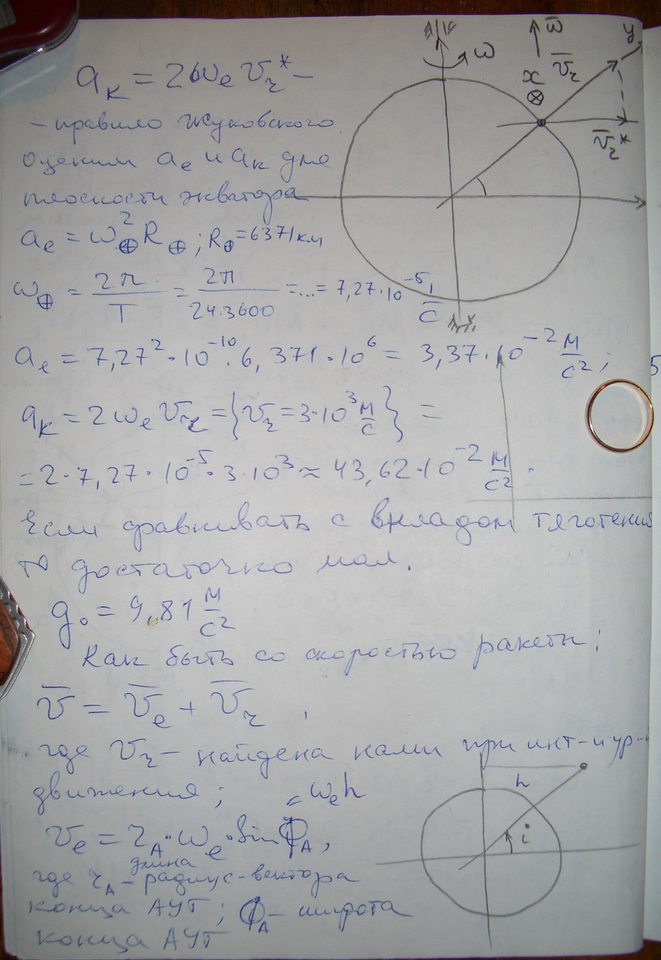 a_к = 2ω_e v_r* –
– правило Жуковского
оценим a_e и a_к для
плоскости экватора
a_e = ω²_⊕ R_⊕ ; R_⊕ = 6371 км
ω_⊕ = 2π/T = 2π/(24·3600) = ... = 7,27·10⁻⁵ 1/с
a_e = 7,27²·10⁻¹⁰·6,371·10⁶ = 3,37·10⁻² м/с² ;
a_к = 2ω_e v_r = {v_r = 3·10³ м/с} =
= 2·7,27·10⁻⁵·3·10³ ≈ 43,62·10⁻² м/с² .
Если сравнивать с вкладом тяготения
то достаточно мал.
g₀ = 9,81 м/с²
Как быть со скоростью ракеты:
v̄ = v̄_e + v̄_r ,
где v_r – найдена нами при инт-и ур-
движения; = ω_e h
v_e = r_A·ω_e·sin Φ_A ,
длина
где r_A – радиус-вектора
конца АУТ; Φ_A – широта
конца АУТ
ω
ω̄
v̄_r
y
x
v̄_r*
5
h
i